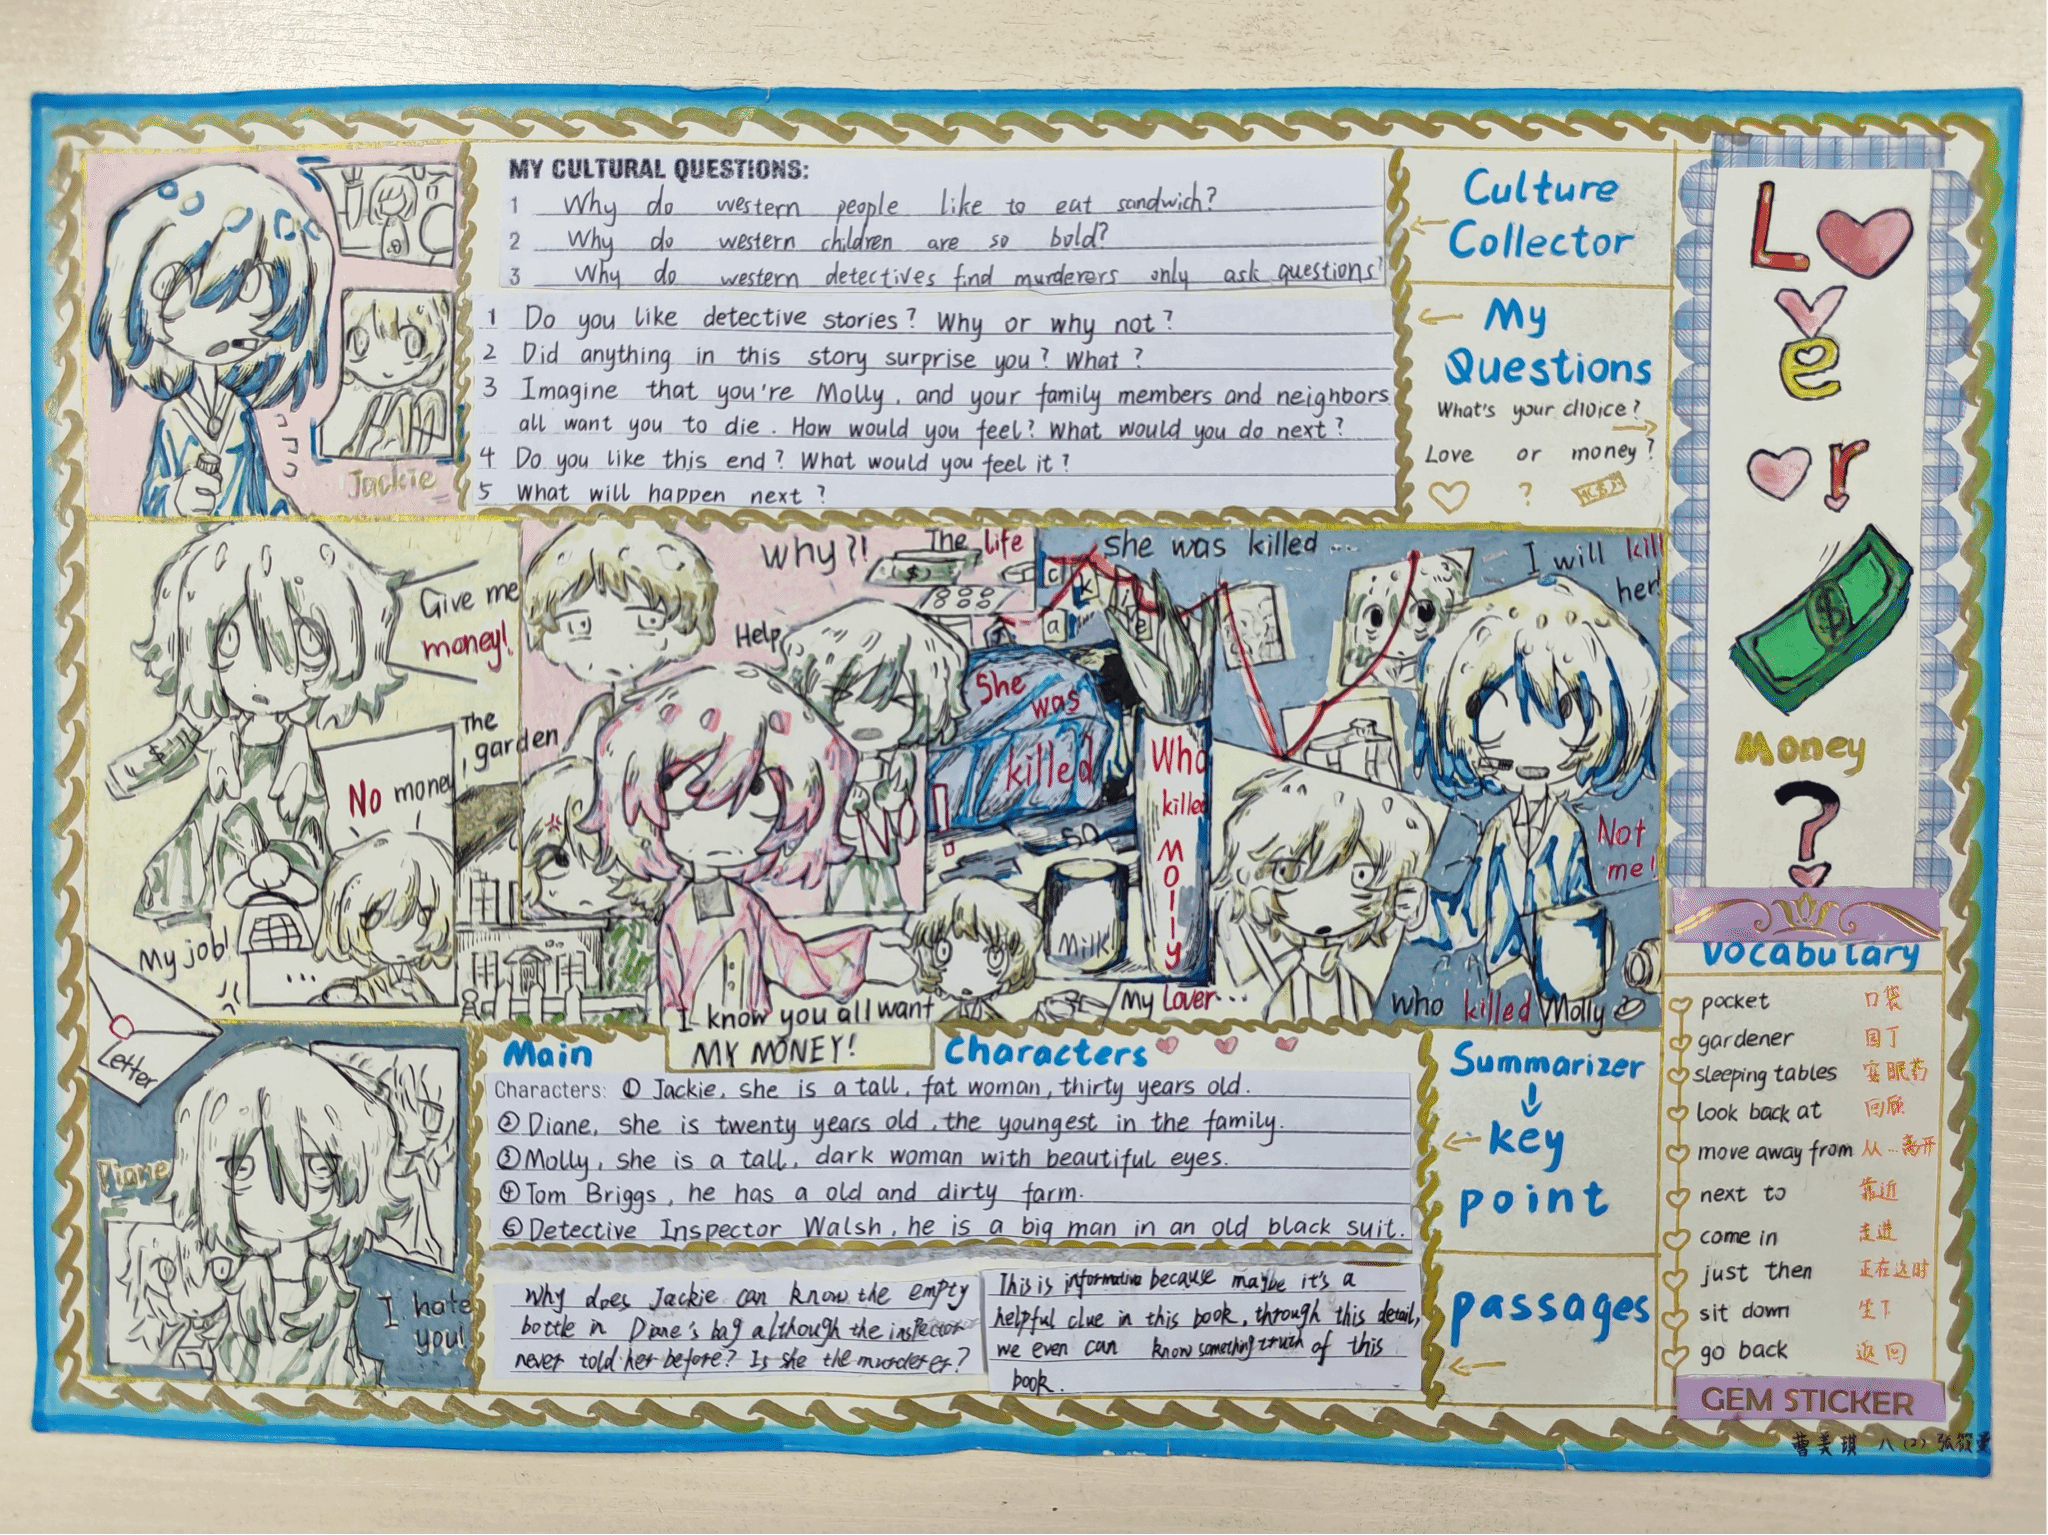 MY CULTURAL QUESTIONS:
1 Why do western people like to eat sandwich?
2 Why do western children are so bold?
3 Why do western detectives find murderers only ask questions?
Culture
Collector
1 Do you like detective stories? Why or why not?
2 Did anything in this story surprise you? What?
3 Imagine that you're Molly, and your family members and neighbors
all want you to die. How would you feel? What would you do next?
4 Do you like this end? What would you feel it?
5 What will happen next?
My
Questions
What's your choice?
Love or money?
?
Jackie
Love
or
Money
?
Give me
money!
No money
The
garden
My job!
...
Letter
Why?!
The life
Help
NO!
I know you all want
MY MONEY!
She was killed...
c
k
a
i
e
She
was
killed
Who
killed
Molly
Milk
My Lover...
I will kill
her!
Not
me!
who killed Molly?
Diane
I hate
you!
Main Characters
Characters: ① Jackie, she is a tall, fat woman, thirty years old.
② Diane, she is twenty years old, the youngest in the family.
③ Molly, she is a tall, dark woman with beautiful eyes.
④ Tom Briggs, he has a old and dirty farm.
⑤ Detective Inspector Walsh, he is a big man in an old black suit.
Summarizer
key
point
Why does Jackie can know the empty
bottle in Diane's bag although the inspector
never told her before? Is she the murderer?
This is informative because maybe it's a
helpful clue in this book, through this detail,
we even can know something truth of this
book.
passages
Vocabulary
pocket 口袋
gardener 园丁
sleeping tables 安眠药
look back at 回顾
move away from 从...离开
next to 靠近
come in 走进
just then 正在这时
sit down 坐下
go back 返回
GEM STICKER
曹美琪 八(2) 张筱